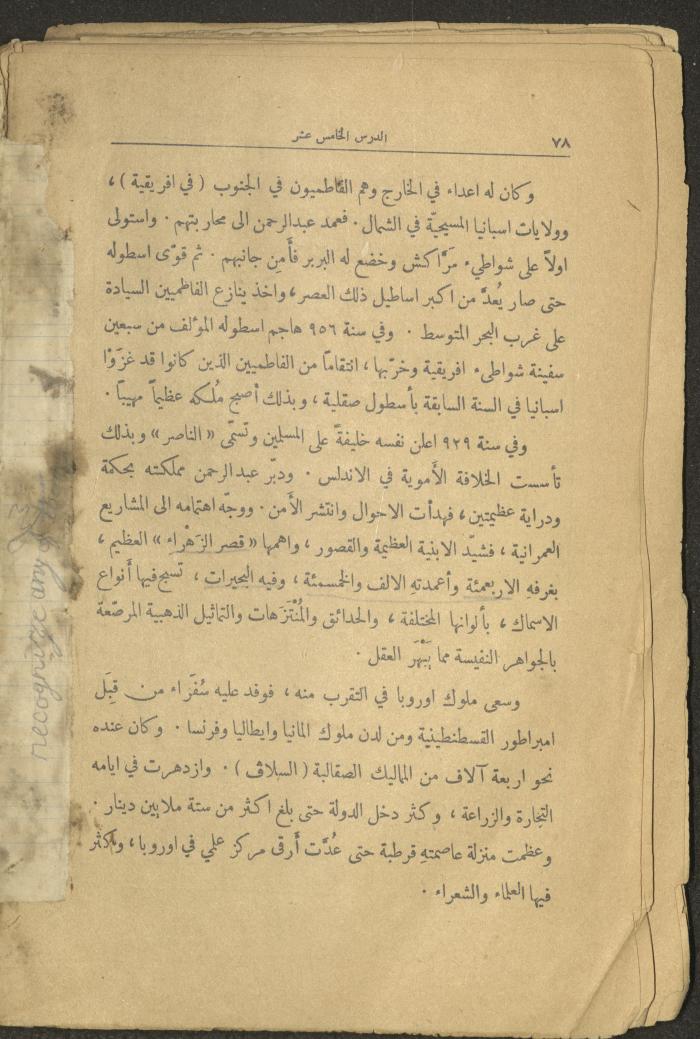 ٧٨
الدرس الخامس عشر
وكان له اعداء في الخارج وهم الفاطميون في الجنوب ( في افريقية ) ،
وولايات اسبانيا المسيحيّة في الشمال . فعمد عبدالرحمن الى محاربتهم . واستولى
اولاً على شواطيء مَرَّاكش وخضع له البربر فأَمِن جانبهم . ثم قوّى اسطوله
حتى صار يُعدَّ من اكبر اساطيل ذلك العصر ، واخذ ينازع الفاطميين السيادة
على غرب البحر المتوسط . وفي سنة ٩٥٦ هاجم اسطوله المؤلف من سبعين
سفينة شواطيء افريقية وخرّبها ، انتقاماً من الفاطميين الذين كانوا قد غزَوْا
اسبانيا في السنة السابقة بأسطول صقلية ، وبذلك أصبح مُلكه عظيماً مهيباً .
وفي سنة ٩٢٩ اعلن نفسه خليفةً على المسلمين وتسمّى « الناصر » وبذلك
تأسست الخلافة الأَموية في الاندلس . ودبّر عبدالرحمن مملكته بحكمة
ودراية عظيمتين ، فهدأت الاحوال وانتشر الأَمن . ووجّه اهتمامه الى المشاريع
العمرانية ، فشيّد الابنية العظيمة والقصور ، واهمها « قصر الزَهْراء » العظيم ،
بغرفهِ الاربعمئة وأعمدتهِ الالف والخمسمئة ، وفيه البحيرات ، تسبح فيها أنواع
الاسماك ، بألوانها المختلفة ، والحدائق والمُنْتَزَهات والتماثيل الذهبية المرصّعة
بالجواهر النفيسة مما يَبْهَر العقل .
وسعى ملوك اوروبا في التقرب منه ، فوفد عليه سُفَرَاء من قِبَل
امبراطور القسطنطينية ومن لدن ملوك المانيا وايطاليا وفرنسا . وكان عنده
نحو اربعة آلاف من المماليك الصقالبة ( السلاڤ ) . وازدهرت في ايامه
التجارة والزراعة ، وكثر دخل الدولة حتى بلغ اكثر من ستة ملايين دينار .
وعظمت منزلة عاصمتهِ قرطبة حتى عُدَّت أَرقى مركز علمي في اوروبا ، وأكثر
فيها العلماء والشعراء .
recognize any of